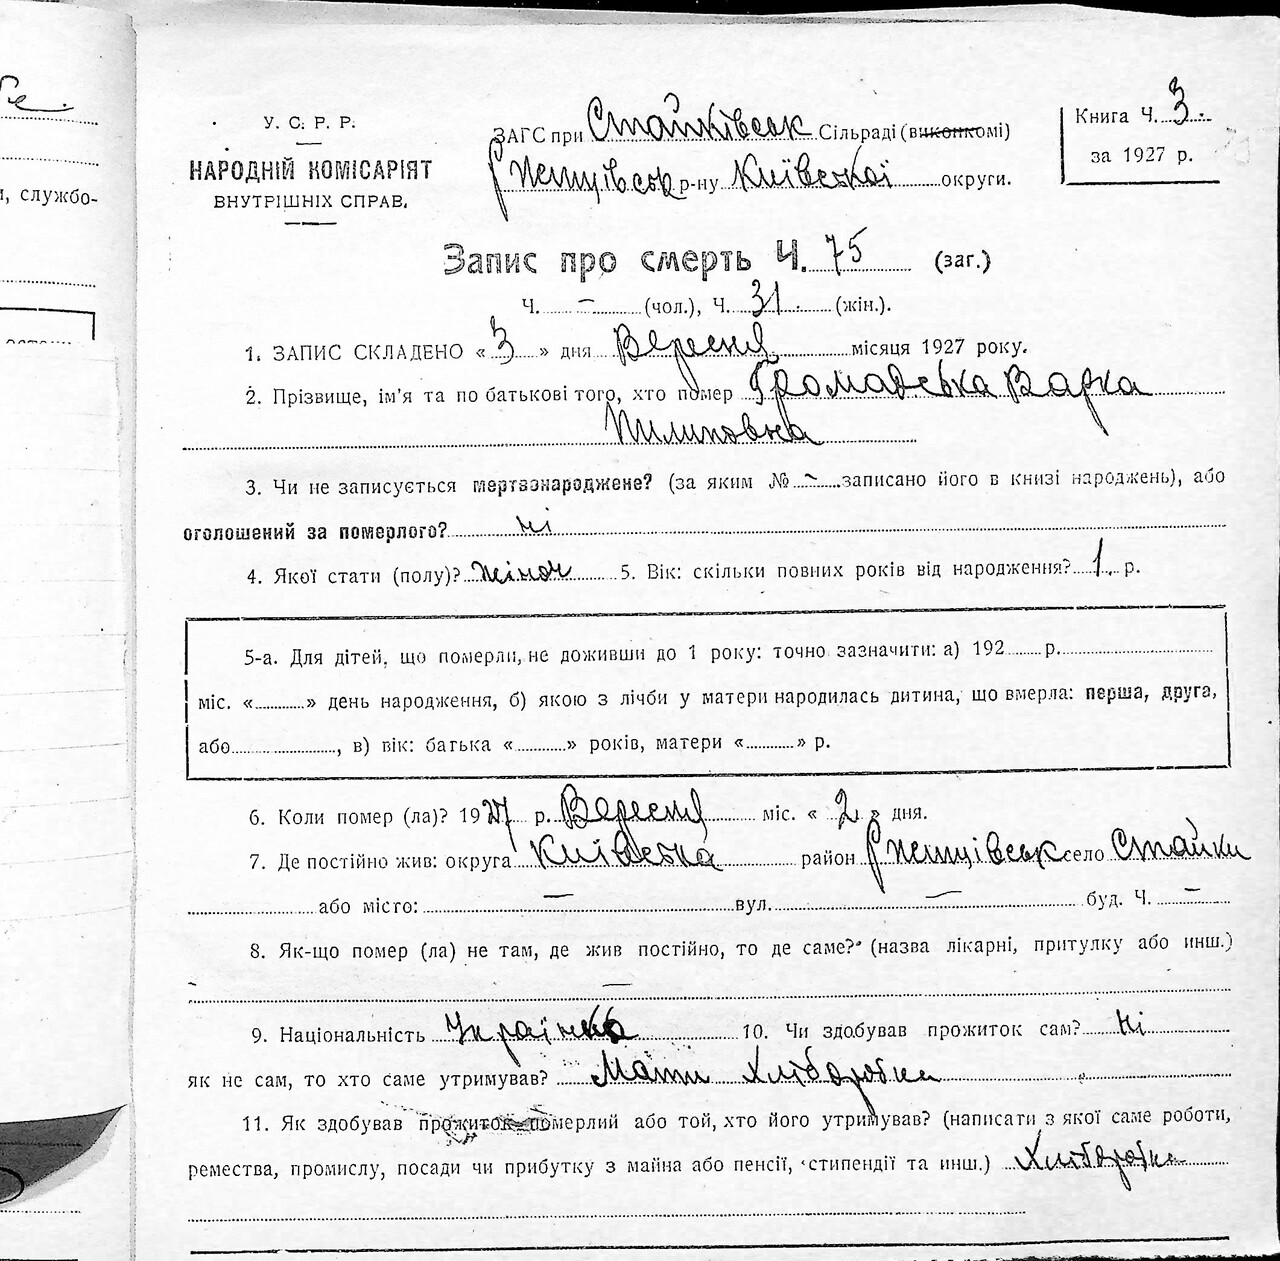 У. С. Р. Р.
НАРОДНІЙ КОМІСАРІЯТ
ВНУТРІШНІХ СПРАВ.
ЗАГС при Стайківськ Сільраді (виконкомі)
Ржищівськ р-ну Київської округи.
Книга Ч. 3.
за 1927 р.
Запис про смерть Ч. 75 (заг.)
Ч. – (чол.), Ч. 31. (жін.).
1. ЗАПИС СКЛАДЕНО « 3 » дня Вересня місяця 1927 року.
2. Прізвище, ім'я та по батькові того, хто помер Громадська Варка
Пилиповна
3. Чи не записується мертвонароджене? (за яким № – записано його в книзі народжень), або
оголошений за померлого? ні
4. Якої стати (полу)? жіноч 5. Вік: скільки повних років від народження? 1. р.
5-а. Для дітей, що померли, не доживши до 1 року: точно зазначити: а) 192 р.
міс. « » день народження, б) якою з лічби у матери народилась дитина, що вмерла: перша, друга,
або , в) вік: батька « » років, матери « » р.
6. Коли помер (ла)? 1927 р. Вересня міс. « 2 » дня.
7. Де постійно жив: округа Київська район Ржищівськ село Стайки
або місто: – вул. – буд. Ч. –
8. Як-що помер (ла) не там, де жив постійно, то де саме? (назва лікарні, притулку або инш.)
–
9. Національність Українка 10. Чи здобував прожиток сам? Ні
як не сам, то хто саме утримував? Мати Хліборобка
11. Як здобував прожиток померлий або той, хто його утримував? (написати з якої саме роботи,
ремества, промислу, посади чи прибутку з майна або пенсії, стипендії та инш.) Хліборобка
, службо-